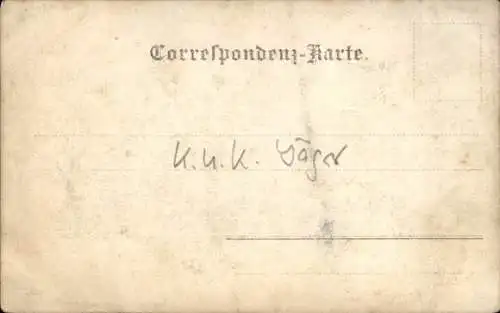 Correspondenz-Karte.
K. u. K. Jäger